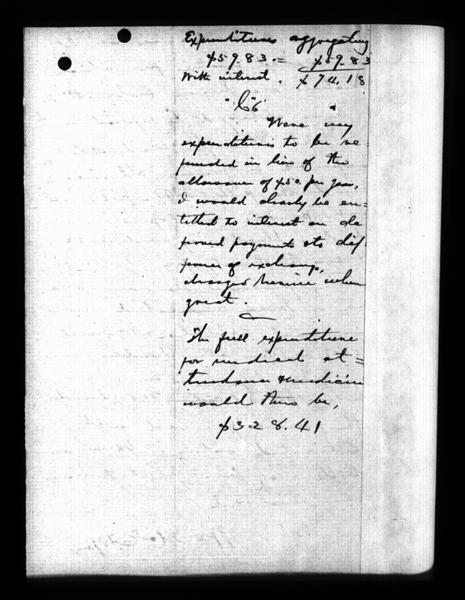 Expenditures aggregating
$59.83 = $59.83
With interest. $74.18
"C"
Were my
expenditures to be re-
funded in lieu of the
allowance of $50. per year,
I would clearly be en=
titled to interest on de
ferred payments etc dif
ference of exchange,
charges herein when
great.
The full expenditure
for medical at=
tendance & medicine
would then be,
$328.41